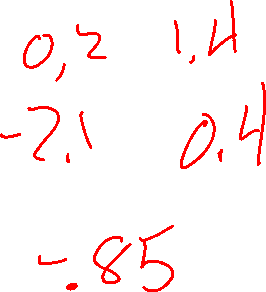 0,2 1,4
-2.1 0.4
-.85